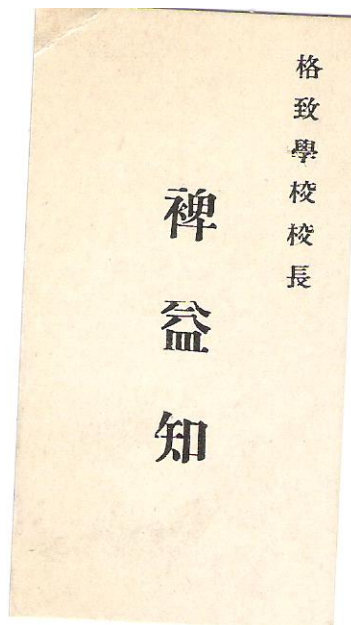 格致學校校長
裨益知